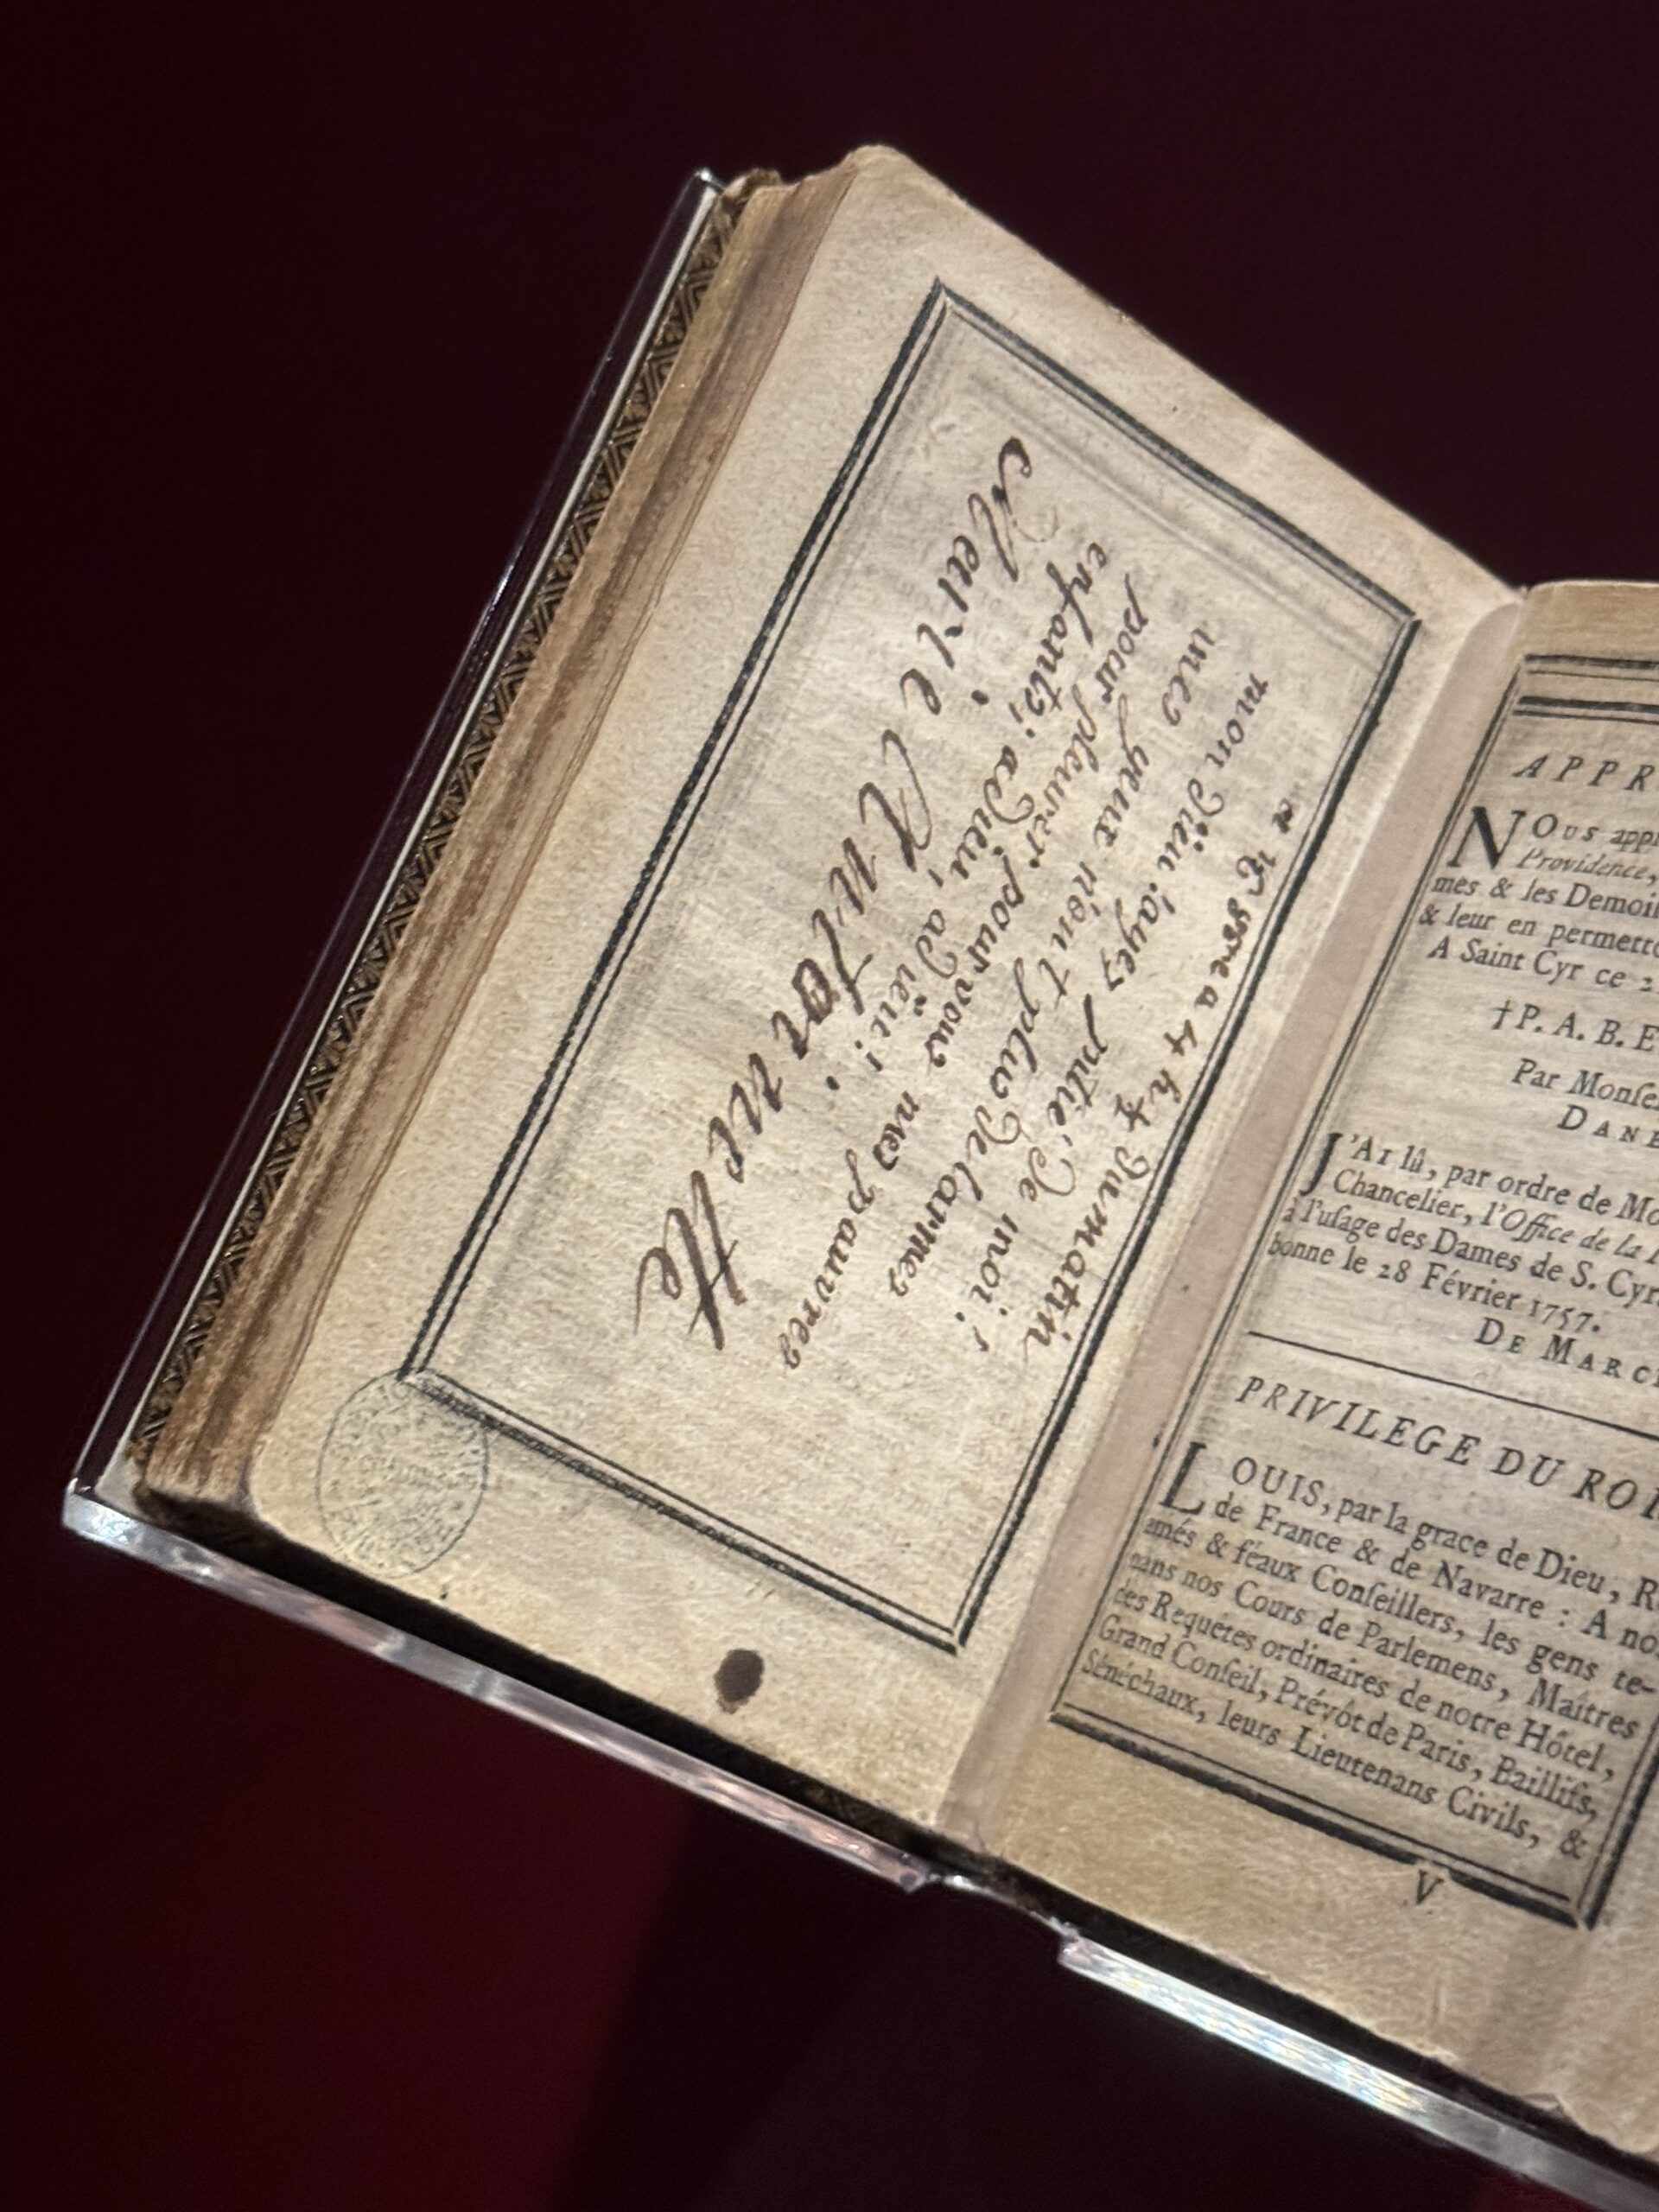 ce 16 8bre a 4 h ½ du matin
mon dieu! ayez pitié de moi!
mes yeux n'ont plus de larmes
pour pleurer pour vous mes pauvres
enfants; adieu, adieu!
Marie Antoinette
APPR
NOus app
Providence,
mes & les Demoi
& leur en permett
A Saint Cyr ce 2
†P. A. B. E
Par Monse
DANE
J'AI lû, par ordre de Mo
Chancelier, l'Office de la
à l'usage des Dames de S. Cyr
bonne le 28 Février 1757.
DE MARC
PRIVILEGE DU ROI
LOUIS, par la grace de Dieu, R
de France & de Navarre : A no
amés & féaux Conseillers, les gens te-
nans nos Cours de Parlemens, Maîtres
des Requêtes ordinaires de notre Hôtel,
Grand Conseil, Prévôt de Paris, Baillifs,
Sénéchaux, leurs Lieutenans Civils, &
V